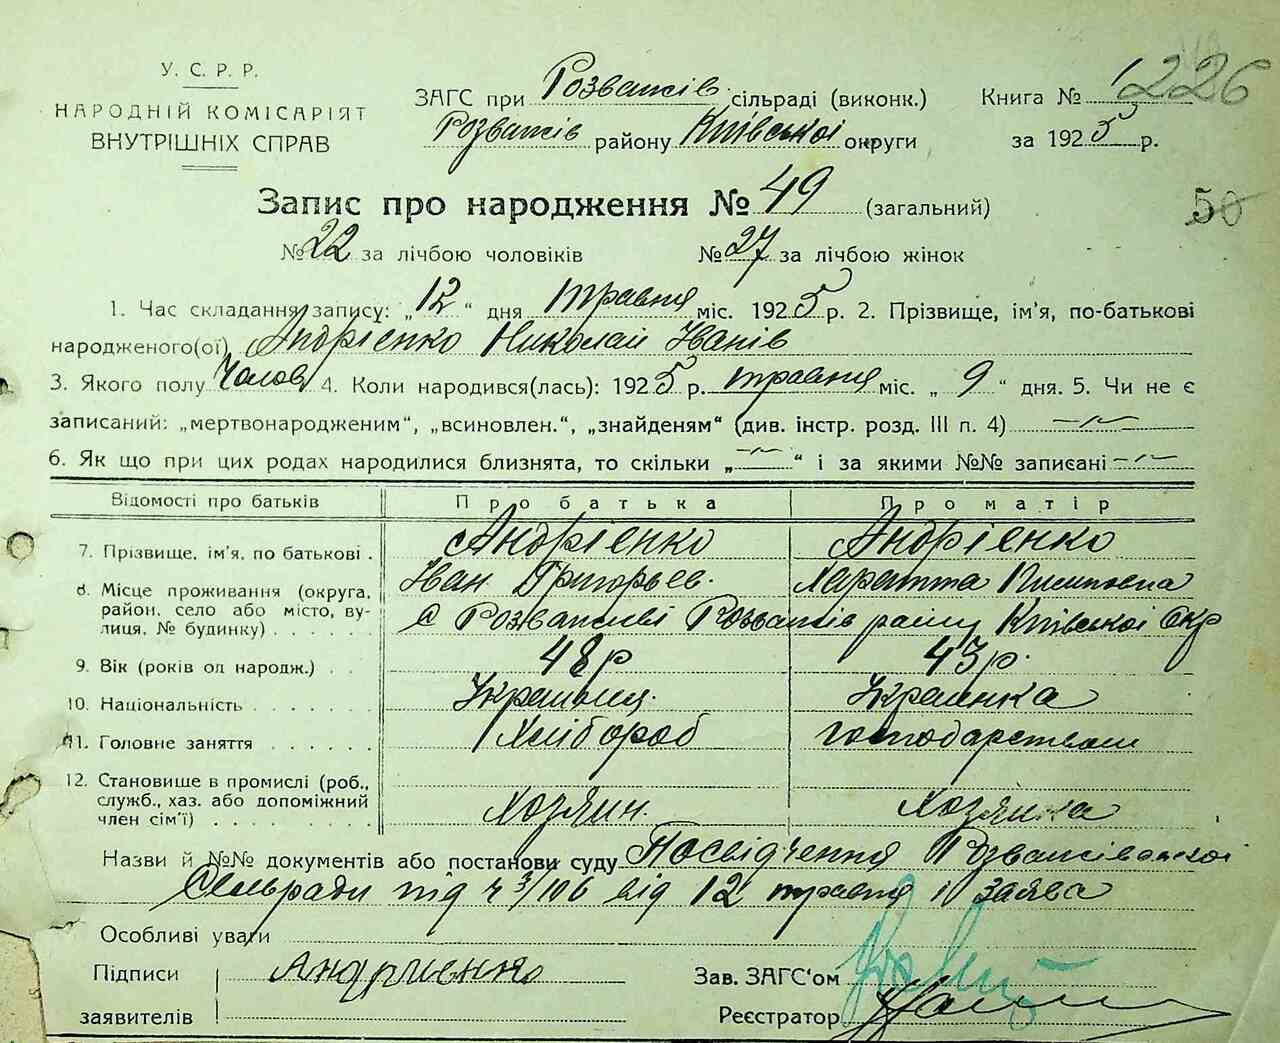 У. С. Р. Р.
НАРОДНІЙ КОМІСАРІЯТ
ВНУТРІШНІХ СПРАВ
ЗАГС при Розважів сільраді (виконк.)
Розважів району Київської округи
Книга № 1226
за 1925 р.
Запис про народження № 49 (загальний)
50
№ 22 за лічбою чоловіків № 27 за лічбою жінок
1. Час складання запису: „12" дня травня міс. 1925 р. 2. Прізвище, ім'я, по-батькові
народженого(ої) Андрієнко Николай Іванів
3. Якого полу Чолов 4. Коли народився(лась): 1925 р. травня міс. „ 9 " дня. 5. Чи не є
записаний: „мертвонародженим", „всиновлен.", „знайденям" (див. інстр. розд. III п. 4)
6. Як що при цих родах народилися близнята, то скільки „ " і за якими №№ записані
Відомості про батьків Про батька Про матір
7. Прізвище, ім'я, по батькові . Андрієнко Андрієнко
Іван Григорьев.
8. Місце проживання (округа, район, село або місто, вулиця, № будинку) с Розважеві Розважів рай Київської Окр
9. Вік (років од народж.) . . 48 р 43 р.
10. Національність Українец. Українка
11. Головне заняття Хлібороб господарством
12. Становище в промислі (роб., служб., хаз. або допоміжний член сім'ї) Хозяин. Хозяйка
Назви й №№ документів або постанови суду Посвідчення Розважівської
Сельради під ч 3/106 від 12 травня і заява
Особливі уваги
Підписи Андриенко Зав. ЗАГС'ом
заявителів Реєстратор